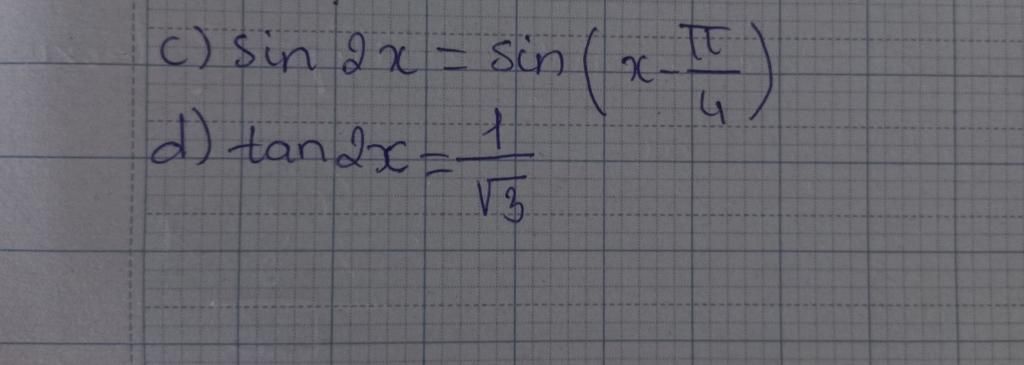 c) sin 2x = sin(x - π/4)
d) tan 2x = 1/√3